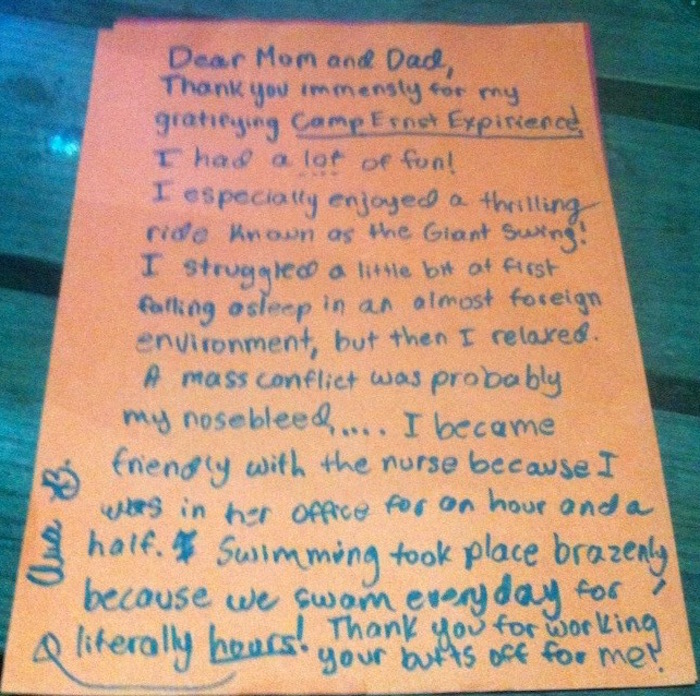 Dear Mom and Dad,
Thank you immensly for my
gratifying Camp Ernst Expirience!
I had a lot of fun!
I especially enjoyed a thrilling
ride known as the Giant Swing!
I struggled a little bit at first
falling asleep in an almost foreign
environment, but then I relaxed.
A mass conflict was probably
my nosebleed.... I became
friendly with the nurse because I
was in her office for an hour and a
half. Swimming took place brazenly
because we swam everyday for
literally hours! Thank you for working
your butts off for me!